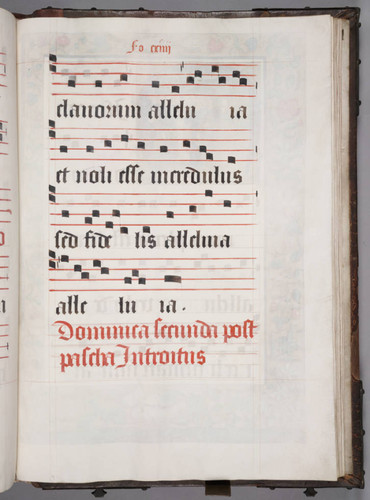 Fo cciiii
clauorum allelu ia
et noli esse incredulus
sed fide lis alleluia
alle lu ia .
Dominica secunda post
pascha Introitus